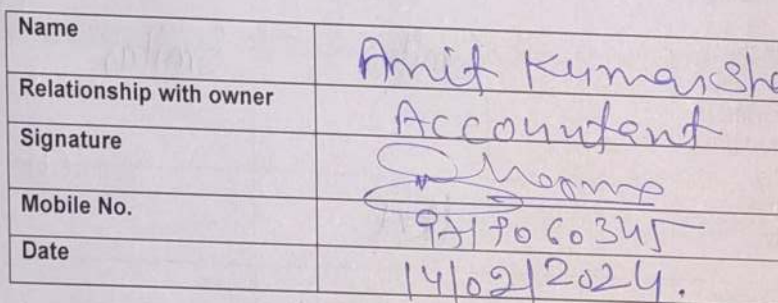 Name Amit Kumar Sha
Relationship with owner Accountent
Signature
Mobile No.
Date 14/02/2024.